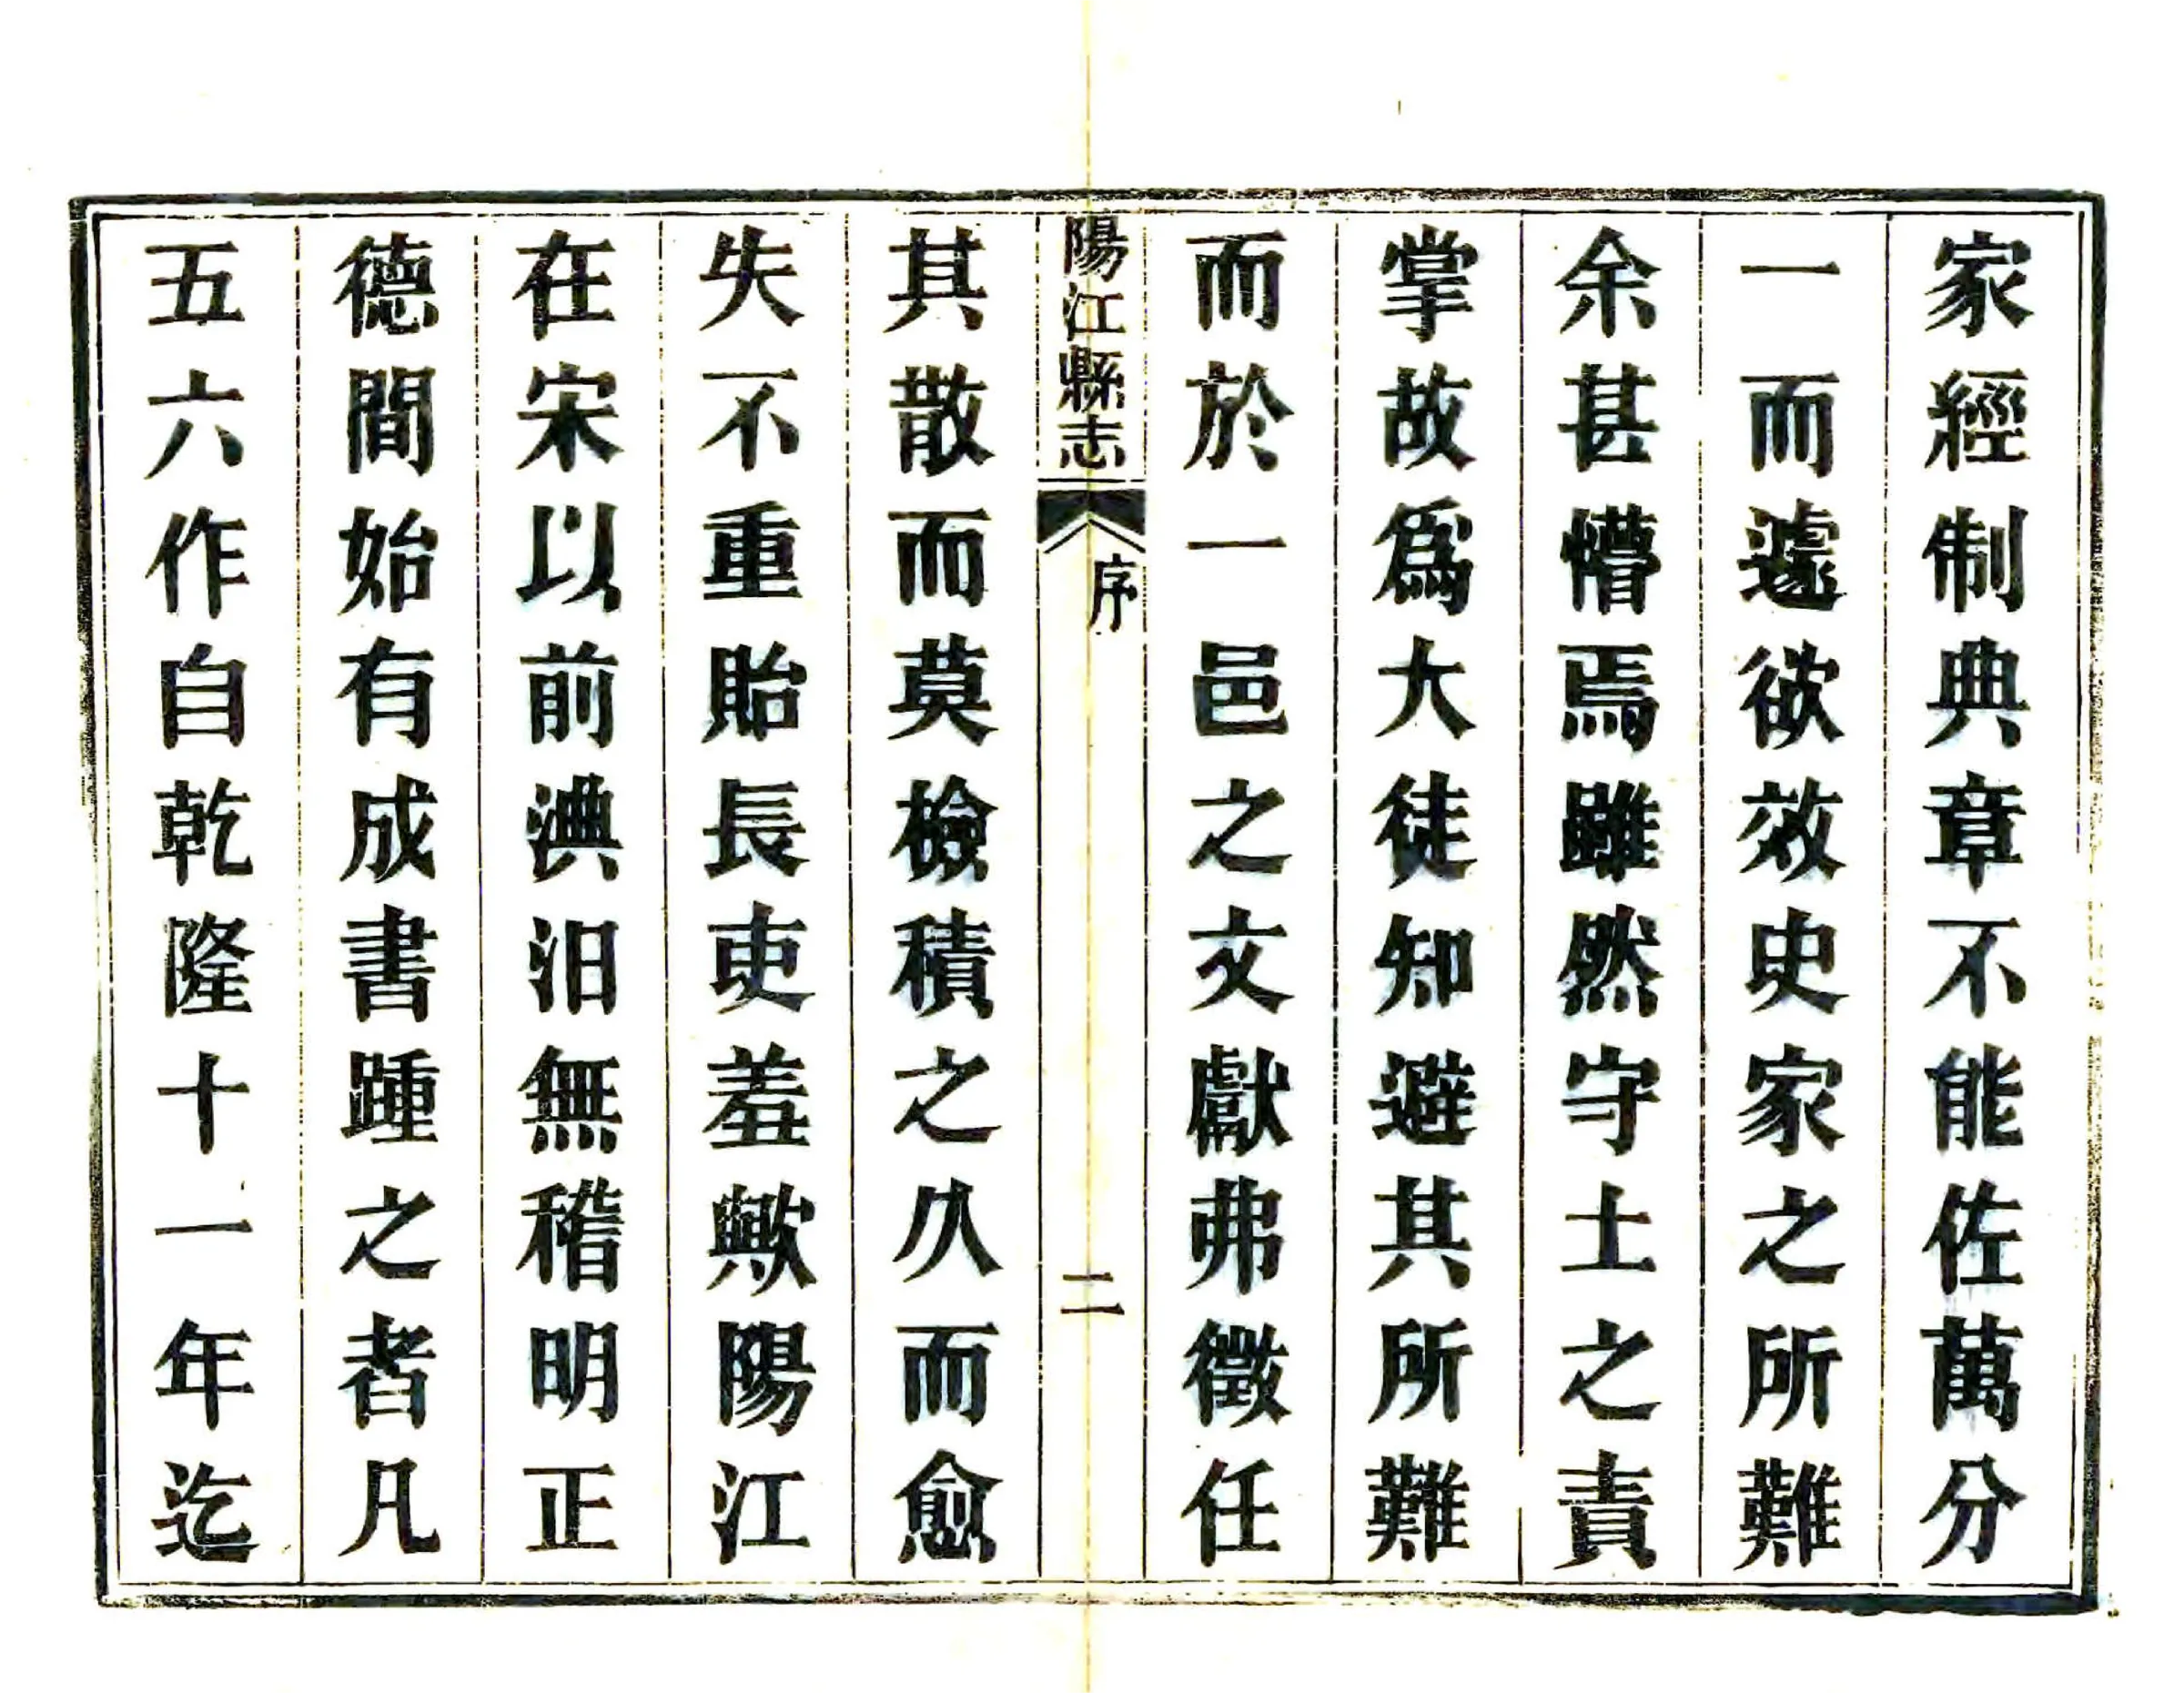 家經制典章不能佐萬分
一而遽欲效史家之所難
余甚懵焉雖然守土之責
掌故爲大徒知避其所難
而於一邑之文獻弗徵任
陽江縣志
序
二
其散而莫檢積之久而愈
失不重貽長吏羞歟陽江
在宋以前淟汩無稽明正
德間始有成書踵之者凡
五六作自乾隆十一年迄